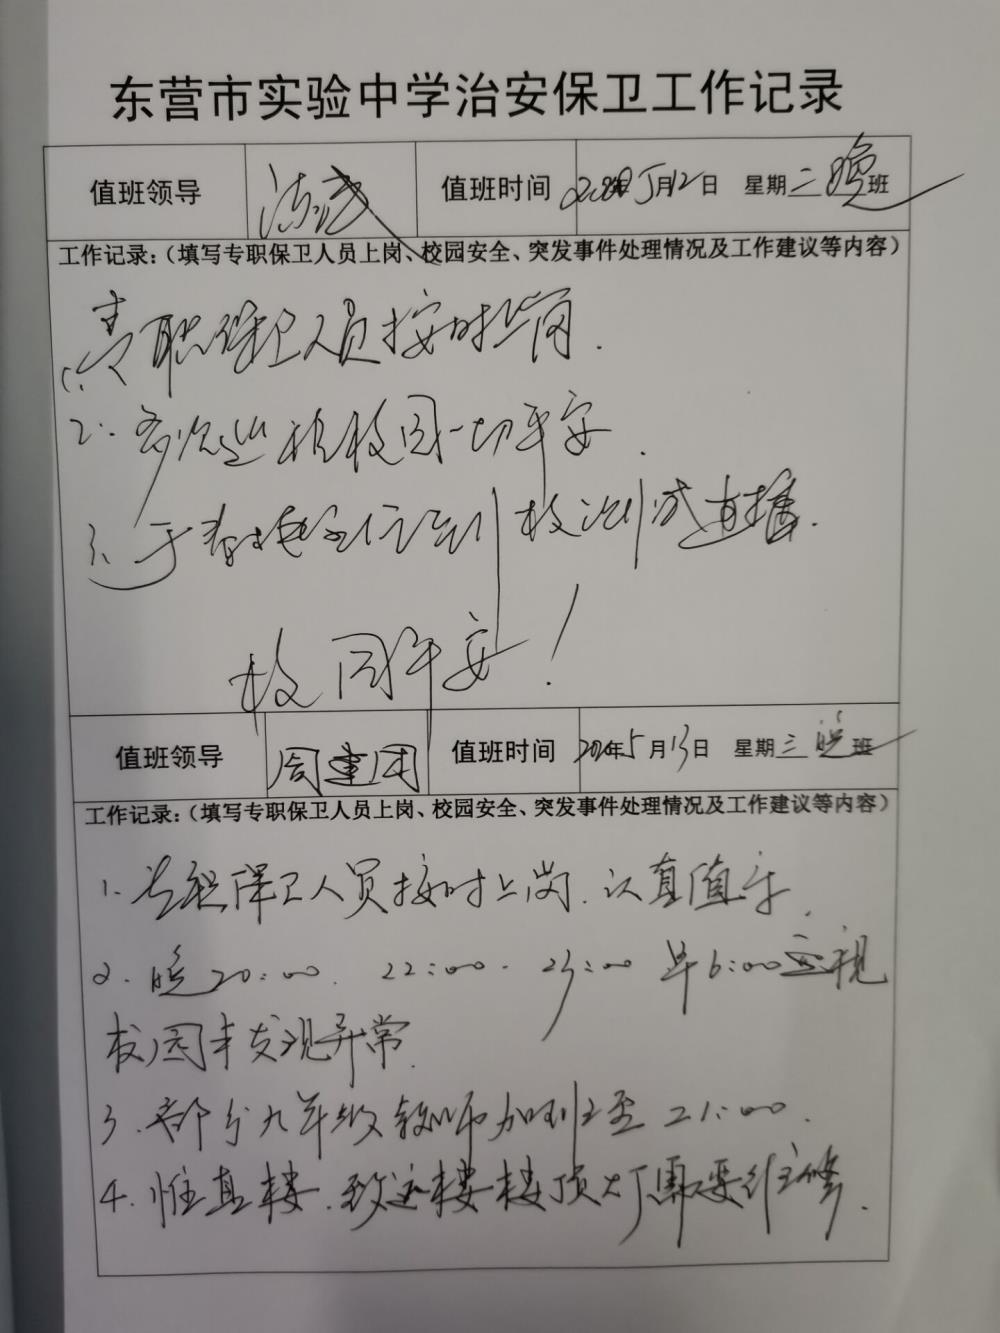 东营市实验中学治安保卫工作记录
值班领导 值班时间 5月12日 星期二晚班
工作记录：（填写专职保卫人员上岗、校园安全、突发事件处理情况及工作建议等内容）
1.专职保卫人员按时上岗.
2.多次巡视校园一切平安.
3、直播.
校园平安！
值班领导 周建国 值班时间 5月13日 星期三晚班
工作记录：（填写专职保卫人员上岗、校园安全、突发事件处理情况及工作建议等内容）
1.专职保卫人员按时上岗.认真值守.
2.晚20:00. 22:00. 23:00 早6:00巡视
校园未发现异常.
3.部分九年级教师加班至21:00.
4.惟真楼.致远楼楼顶大厅需要维修.